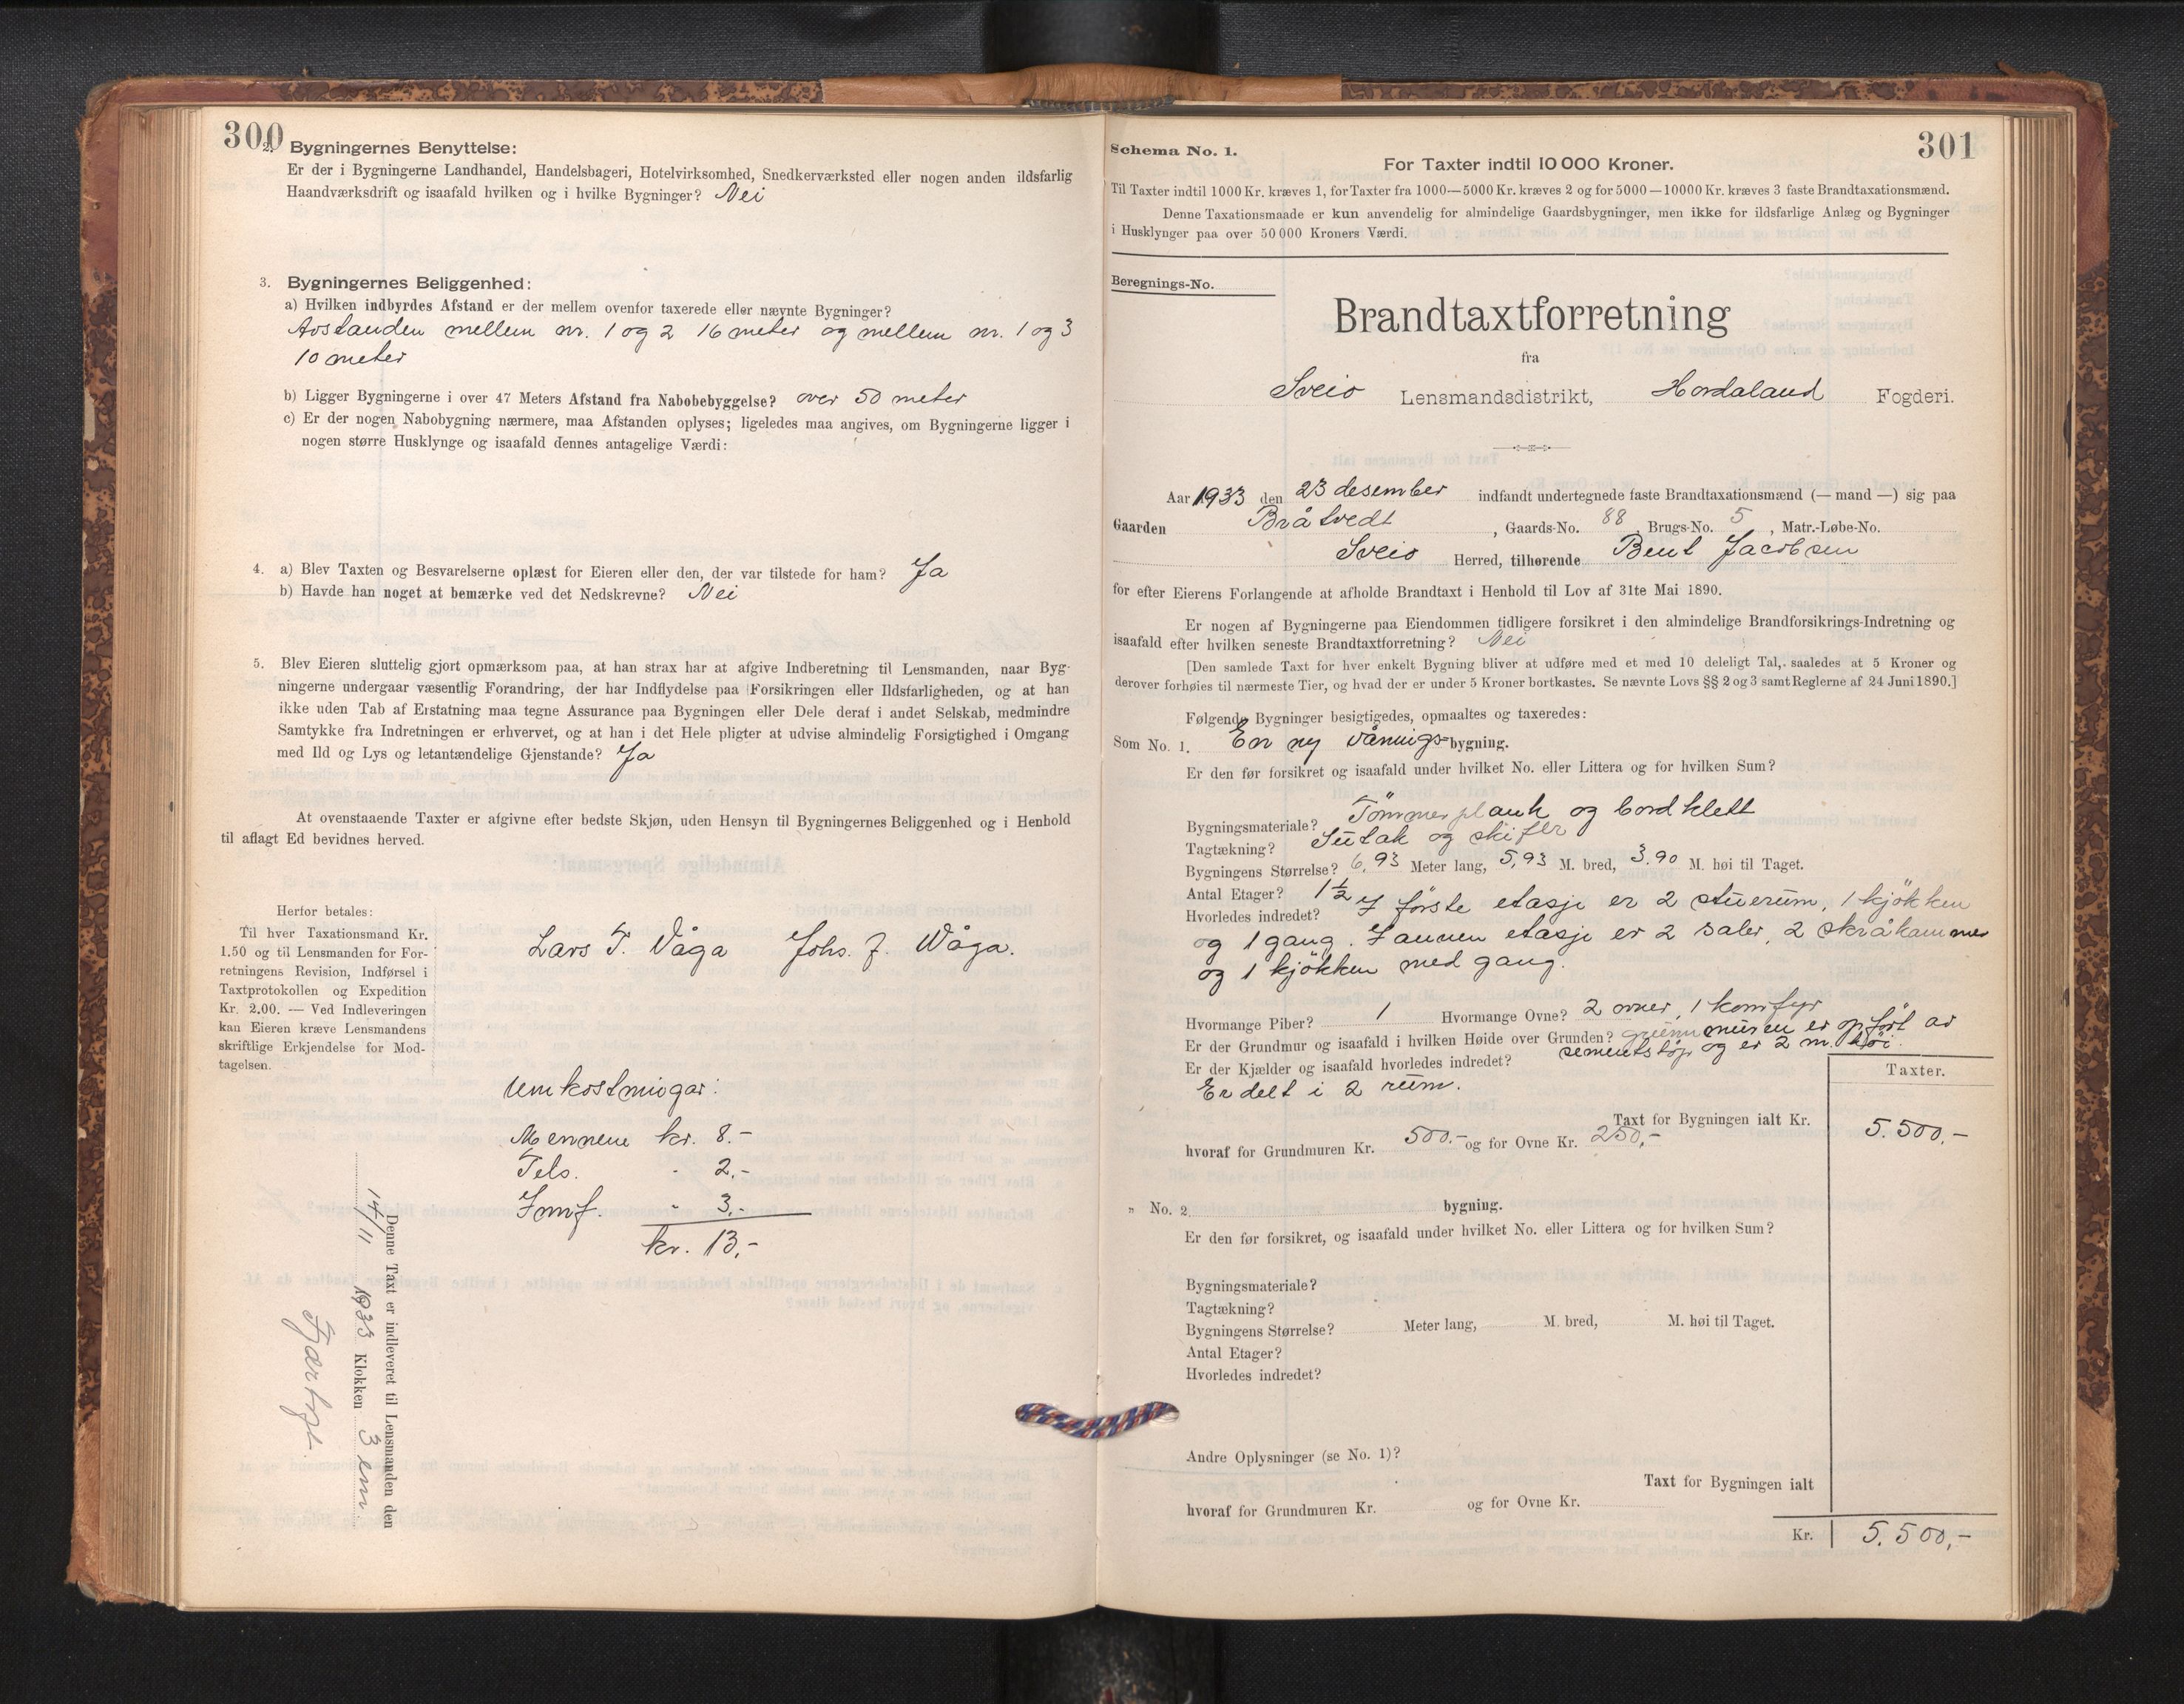 300
2. Bygningernes Benyttelse:
Er der i Bygningerne Landhandel, Handelsbageri, Hotelvirksomhed, Snedkerværksted eller nogen anden ildsfarlig
Haandværksdrift og isaafald hvilken og i hvilke Bygninger? Nei
3. Bygningernes Beliggenhed:
a) Hvilken indbyrdes Afstand er der mellem ovenfor taxerede eller nævnte Bygninger?
Avstanden mellem nr. 1 og 2 16 meter og mellem nr. 1 og 3
10 meter
b) Ligger Bygningerne i over 47 Meters Afstand fra Nabobebyggelse? over 50 meter
c) Er der nogen Nabobygning nærmere, maa Afstanden oplyses; ligeledes maa angives, om Bygningerne ligger i
nogen større Husklynge og isaafald dennes antagelige Værdi:
4. a) Blev Taxten og Besvarelserne oplæst for Eieren eller den, der var tilstede for ham? Ja
b) Havde han noget at bemærke ved det Nedskrevne? Nei
5. Blev Eieren sluttelig gjort opmærksom paa, at han strax har at afgive Indberetning til Lensmanden, naar Byg-
ningerne undergaar væsentlig Forandring, der har Indflydelse paa Forsikringen eller Ildsfarligheden, og at han
ikke uden Tab af Erstatning maa tegne Assurance paa Bygningen eller Dele deraf i andet Selskab, medmindre
Samtykke fra Indretningen er erhvervet, og at han i det Hele pligter at udvise almindelig Forsigtighed i Omgang
med Ild og Lys og letantændelige Gjenstande? Ja
At ovenstaaende Taxter er afgivne efter bedste Skjøn, uden Hensyn til Bygningernes Beliggenhed og i Henhold
til aflagt Ed bevidnes herved.
Herfor betales:
Til hver Taxationsmand Kr.
1.50 og til Lensmanden for For-
retningens Revision, Indførsel i
Taxtprotokollen og Expedition
Kr. 2.00. — Ved Indleveringen
kan Eieren kræve Lensmandens
skriftlige Erkjendelse for Mod-
tagelsen.
Lars T. Våga Johs. J. Wåga.
Umkostningar:
Mennene kr. 8.-
Tels. - 2.-
Innf. - 3.-
kr. 13.-
Denne Taxt er indleveret til Lensmanden den
14/11 1933 Klokken 3 em.
301
Schema No. 1.
For Taxter indtil 10 000 Kroner.
Til Taxter indtil 1000 Kr. kræves 1, for Taxter fra 1000—5000 Kr. kræves 2 og for 5000—10000 Kr. kræves 3 faste Brandtaxationsmænd.
Denne Taxationsmaade er kun anvendelig for almindelige Gaardsbygninger, men ikke for ildsfarlige Anlæg og Bygninger
i Husklynger paa over 50 000 Kroners Værdi.
Beregnings-No.
Brandtaxtforretning
fra
Sveio Lensmandsdistrikt, Hordaland Fogderi.
Aar 1933 den 23 desember indfandt undertegnede faste Brandtaxationsmænd (— mand —) sig paa
Gaarden Bråtvedt, Gaards-No. 88, Brugs-No. 5, Matr.-Løbe-No.
Sveio Herred, tilhørende Bent Jacobsen
for efter Eierens Forlangende at afholde Brandtaxt i Henhold til Lov af 31te Mai 1890.
Er nogen af Bygningerne paa Eiendommen tidligere forsikret i den almindelige Brandforsikrings-Indretning og
isaafald efter hvilken seneste Brandtaxtforretning? Nei
[Den samlede Taxt for hver enkelt Bygning bliver at udføre med et med 10 deleligt Tal, saaledes at 5 Kroner og
derover forhøies til nærmeste Tier, og hvad der er under 5 Kroner bortkastes. Se nævnte Lovs §§ 2 og 3 samt Reglerne af 24 Juni 1890.]
Følgende Bygninger besigtigedes, opmaaltes og taxeredes:
Som No. 1. En ny vånings-bygning.
Er den før forsikret og isaafald under hvilket No. eller Littera og for hvilken Sum?
Bygningsmateriale? Tömmerplank og bordklett
Tagtækning? Sutak og skifer
Bygningens Størrelse? 6,93 Meter lang, 5,93 M. bred, 3.90 M. høi til Taget.
Antal Etager? 1½
Hvorledes indredet? I första etasje er 2 stuerum, 1 kjökken
og 1 gang. I annen etasje er 2 saler, 2 skråkammer
og 1 kjökken med gang.
Hvormange Piber? 1 Hvormange Ovne? 2 ovner, 1 komfyr
Er der Grundmur og isaafald i hvilken Høide over Grunden? grunnmuren er opfört av
Er der Kjælder og isaafald hvorledes indredet? sementstöp og er 2 m. höi.
Er delt i 2 rum.
Taxter.
Taxt for Bygningen ialt Kr. 5.500,-
hvoraf for Grundmuren Kr. 500.- og for Ovne Kr. 250,-
„ No. 2 bygning.
Er den før forsikret, og isaafald under hvilket No. eller Littera og for hvilken Sum?
Bygningsmateriale?
Tagtækning?
Bygningens Størrelse? Meter lang, M. bred, M. høi til Taget.
Antal Etager?
Hvorledes indredet?
Andre Oplysninger (se No. 1)?
Taxt for Bygningen ialt
hvoraf for Grundmuren Kr. og for Ovne Kr.
Kr. 5.500,-